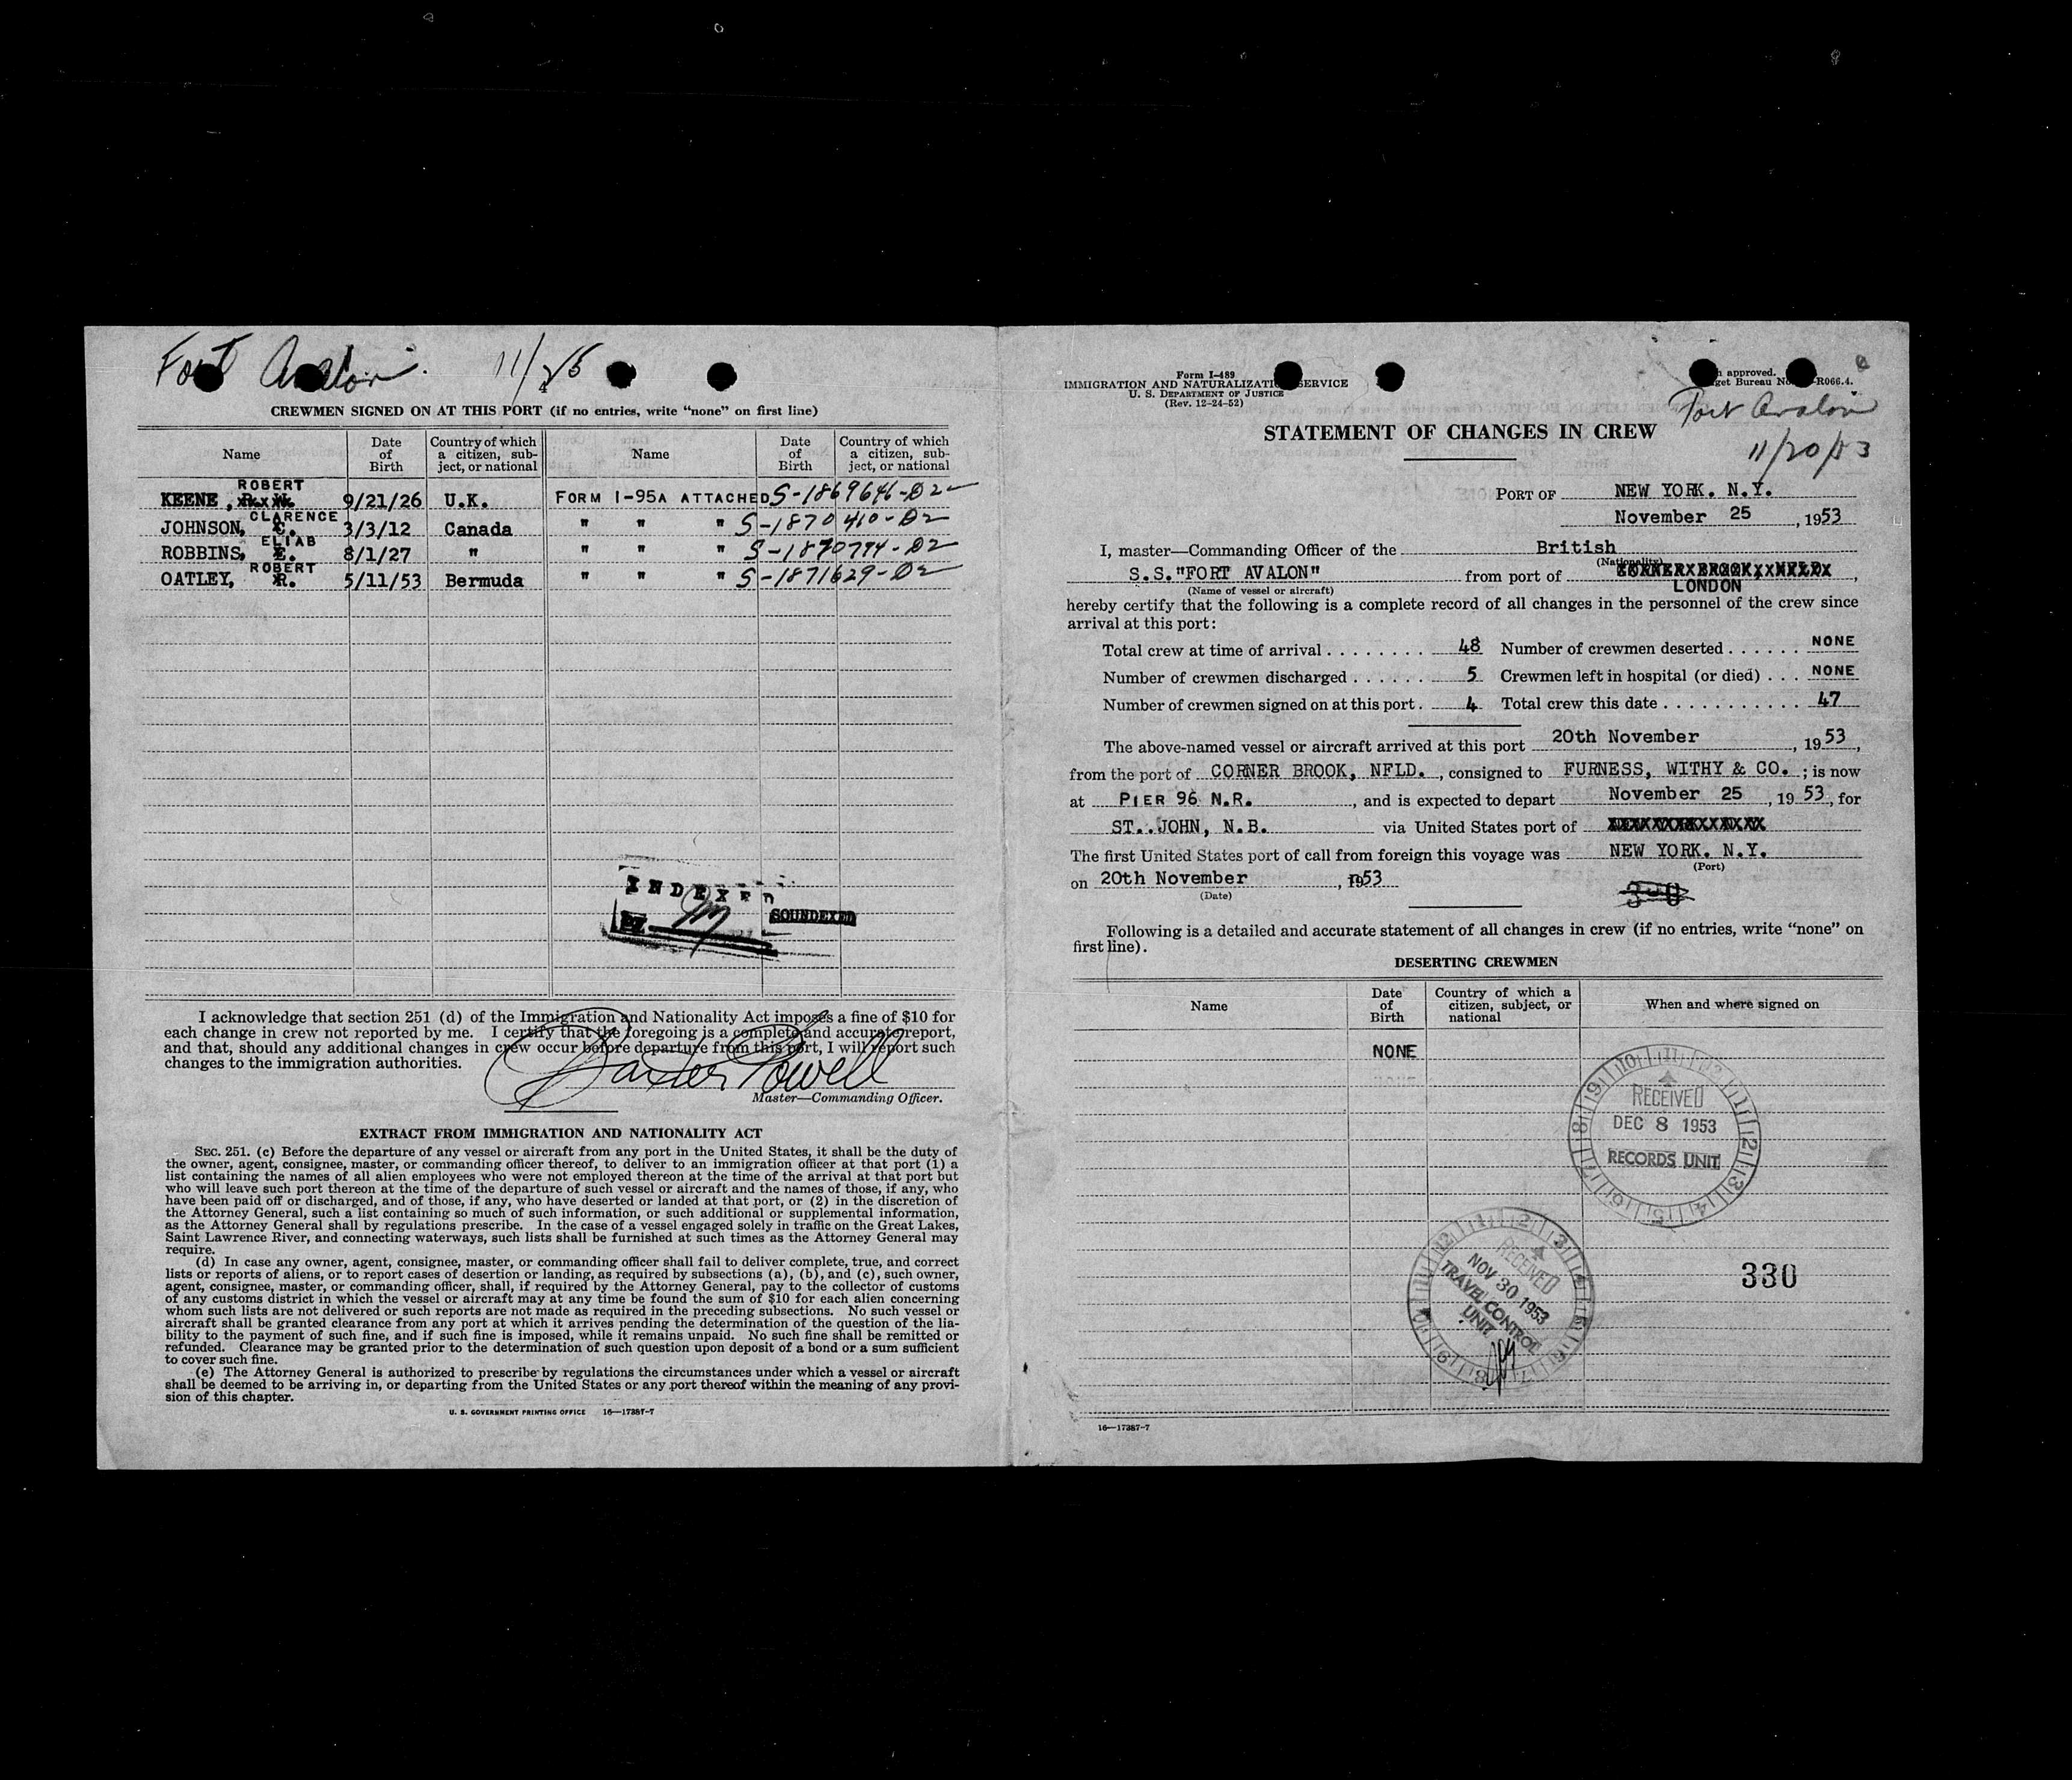 Fort Avalon. 11/25
CREWMEN SIGNED ON AT THIS PORT (if no entries, write “none” on first line)
Name Date of Birth Country of which a citizen, subject, or national Name Date of Birth Country of which a citizen, subject, or national
ROBERT
KEENE, 9/21/26 U.K. FORM I-95A ATTACHED S-1869646-D2
CLARENCE
JOHNSON, C. 3/3/12 Canada " " " S-1870410-D2
ELIAB
ROBBINS, E. 8/1/27 " " " " S-1870774-D2
ROBERT
OATLEY, R. 5/11/53 Bermuda " " " S-1871629-D2
INDEXED
BY
SOUNDEXED
I acknowledge that section 251 (d) of the Immigration and Nationality Act imposes a fine of $10 for
each change in crew not reported by me. I certify that the foregoing is a complete and accurate report,
and that, should any additional changes in crew occur before departure from this port, I will report such
changes to the immigration authorities.
Baxter Powell
Master—Commanding Officer.
EXTRACT FROM IMMIGRATION AND NATIONALITY ACT
SEC. 251. (c) Before the departure of any vessel or aircraft from any port in the United States, it shall be the duty of
the owner, agent, consignee, master, or commanding officer thereof, to deliver to an immigration officer at that port (1) a
list containing the names of all alien employees who were not employed thereon at the time of the arrival at that port but
who will leave such port thereon at the time of the departure of such vessel or aircraft and the names of those, if any, who
have been paid off or discharged, and of those, if any, who have deserted or landed at that port, or (2) in the discretion of
the Attorney General, such a list containing so much of such information, or such additional or supplemental information,
as the Attorney General shall by regulations prescribe. In the case of a vessel engaged solely in traffic on the Great Lakes,
Saint Lawrence River, and connecting waterways, such lists shall be furnished at such times as the Attorney General may
require.
(d) In case any owner, agent, consignee, master, or commanding officer shall fail to deliver complete, true, and correct
lists or reports of aliens, or to report cases of desertion or landing, as required by subsections (a), (b), and (c), such owner,
agent, consignee, master, or commanding officer, shall, if required by the Attorney General, pay to the collector of customs
of any customs district in which the vessel or aircraft may at any time be found the sum of $10 for each alien concerning
whom such lists are not delivered or such reports are not made as required in the preceding subsections. No such vessel or
aircraft shall be granted clearance from any port at which it arrives pending the determination of the question of the lia-
bility to the payment of such fine, and if such fine is imposed, while it remains unpaid. No such fine shall be remitted or
refunded. Clearance may be granted prior to the determination of such question upon deposit of a bond or a sum sufficient
to cover such fine.
(e) The Attorney General is authorized to prescribe by regulations the circumstances under which a vessel or aircraft
shall be deemed to be arriving in, or departing from the United States or any port thereof within the meaning of any provi-
sion of this chapter.
U. S. GOVERNMENT PRINTING OFFICE 16—17387-7
Form I-489
IMMIGRATION AND NATURALIZATION SERVICE
U. S. DEPARTMENT OF JUSTICE
(Rev. 12-24-52)
approved.
get Bureau No. -R066.4.
Fort Avalon
11/20/53
STATEMENT OF CHANGES IN CREW
PORT OF NEW YORK. N.Y.
November 25, 1953
I, master—Commanding Officer of the British
(Nationality)
S.S."FORT AVALON" from port of CORNER BROOK, NFLD,
(Name of vessel or aircraft) LONDON
hereby certify that the following is a complete record of all changes in the personnel of the crew since
arrival at this port:
Total crew at time of arrival . . . . . . . . 48 Number of crewmen deserted . . . . . . NONE
Number of crewmen discharged . . . . . . 5 Crewmen left in hospital (or died) . . . NONE
Number of crewmen signed on at this port . 4 Total crew this date . . . . . . . . . . . 47
The above-named vessel or aircraft arrived at this port 20th November, 1953,
from the port of CORNER BROOK, NFLD., consigned to FURNESS, WITHY & CO. ; is now
at PIER 96 N.R., and is expected to depart November 25, 1953, for
ST. JOHN, N.B. via United States port of
The first United States port of call from foreign this voyage was NEW YORK. N.Y.
(Port)
on 20th November, 1953
(Date)
Following is a detailed and accurate statement of all changes in crew (if no entries, write “none” on
first line).
DESERTING CREWMEN
Name Date of Birth Country of which a citizen, subject, or national When and where signed on
NONE
RECEIVED
DEC 8 1953
RECORDS UNIT
RECEIVED
NOV 30 1953
TRAVEL CONTROL
UNIT
330
16—17387-7